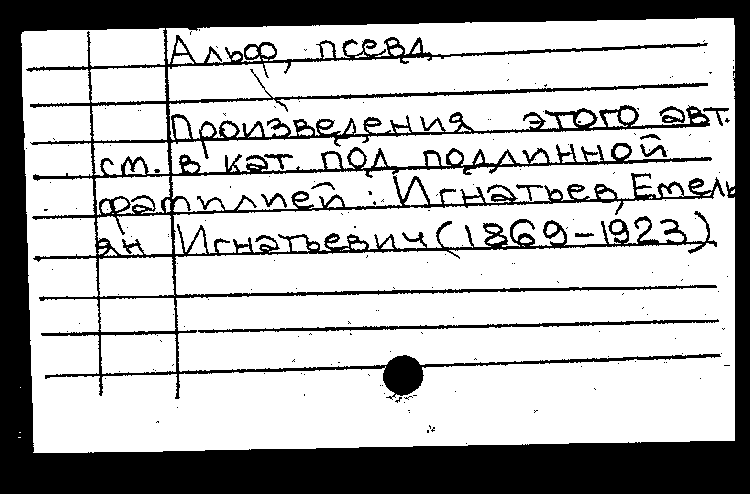 Альф, псевд.
Произведения этого авт.
см. в кат. под подлинной
фамилией: Игнатьев, Емель
ян Игнатьевич (1869-1923)